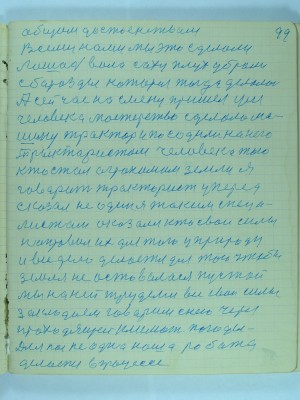 общем достоенствам 99
Всеми нами мы это сделали
Лошад вола саху плуг убрали
с борозди которые тогда делало
А сейчас на смену пришел ум
человека мастерство сделало ма-
шину трактор и посадили на него
Трактаристом человека того
кто стал агрономом земли и
говарить тракторист уперед
сказал не один я таким специа-
листам сказали кто свои силы
направил их для того у природу
и вие дело делается для того чтоби
земля не оставалася пустой
мы на ней трудели вие свои сили
Заклюдаем говарим снею через
проходящей климат погоды-
Для нас не одна наша робота
делаеся в процессе